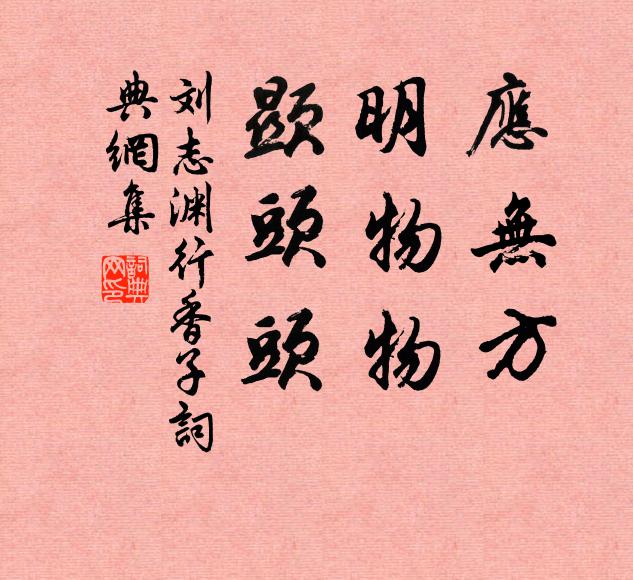 應無方
明物物
顯頭頭
刘志渊行香子詞
典網集
詞典網印